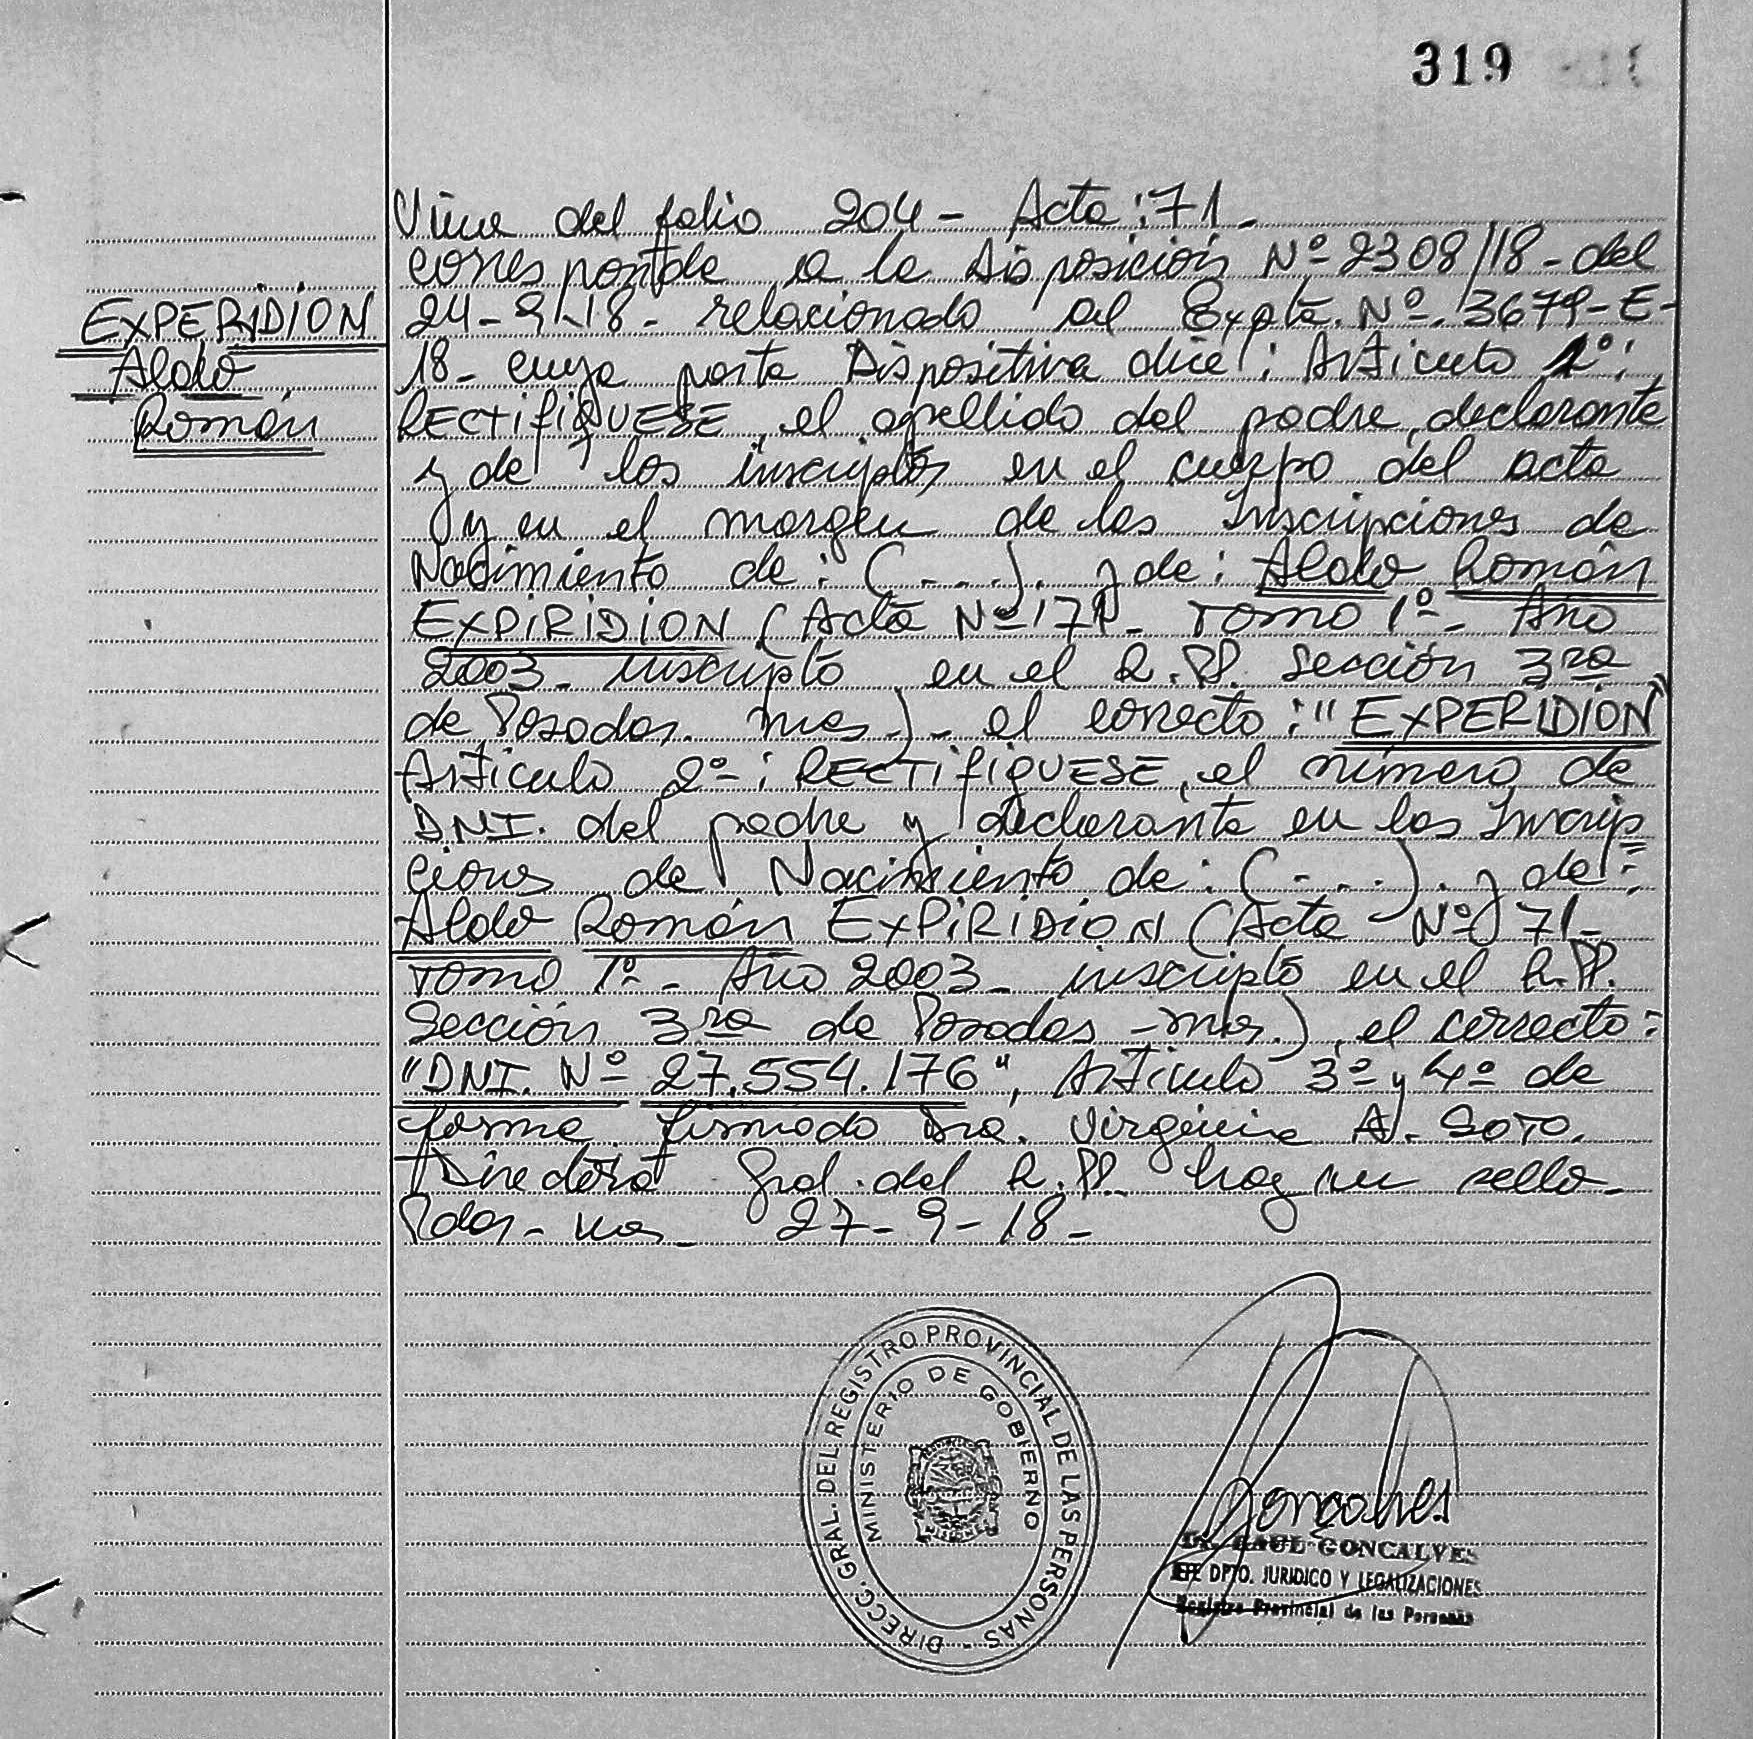 319
Viene del folio 204 - Acta: 71 -
corresponde a la Disposición Nº 2308/18 - del
24 - 9 - 18 - relacionado al Expte. Nº 3679 - E -
18 - cuya parte Dispositiva dice: Artículo 1º:
RECTIFIQUESE, el apellido del padre, declarante
y de los inscriptos en el cuerpo del acta
y en el margen de las Inscripciones de
Nacimiento de: (....). y de: Aldo Román
EXPIRIDION (Acta Nº 171 - Tomo 1º - Año
2003 - inscripto en el R.PP. Sección 3ra
de Posadas. Mnes.) - el correcto: "EXPERIDION"
Artículo 2º - : RECTIFIQUESE, el número de
DNI. del padre y declarante en las Inscrip
ciones de Nacimiento de: (....). y de:
Aldo Román EXPIRIDION (Acta Nº 71 -
Tomo 1º - Año 2003 - inscripto en el R.PP.
Sección 3ra de Posadas - Mnes.) el correcto:
"DNI. Nº 27.554.176", Artículo 3º y 4º de
forma firmado Dra. Virginia A. Soto.
Directora Gral. del R.PP. hay un sello -
Pdas - Mnes - 27 - 9 - 18 -
EXPERIDION
Aldo
Román
DIRECC. GRAL. DEL REGISTRO PROVINCIAL DE LAS PERSONAS -
MINISTERIO DE GOBIERNO
Goncalves
Dr. RAUL GONCALVES
JEFE DPTO. JURIDICO Y LEGALIZACIONES
Registro Provincial de las Personas